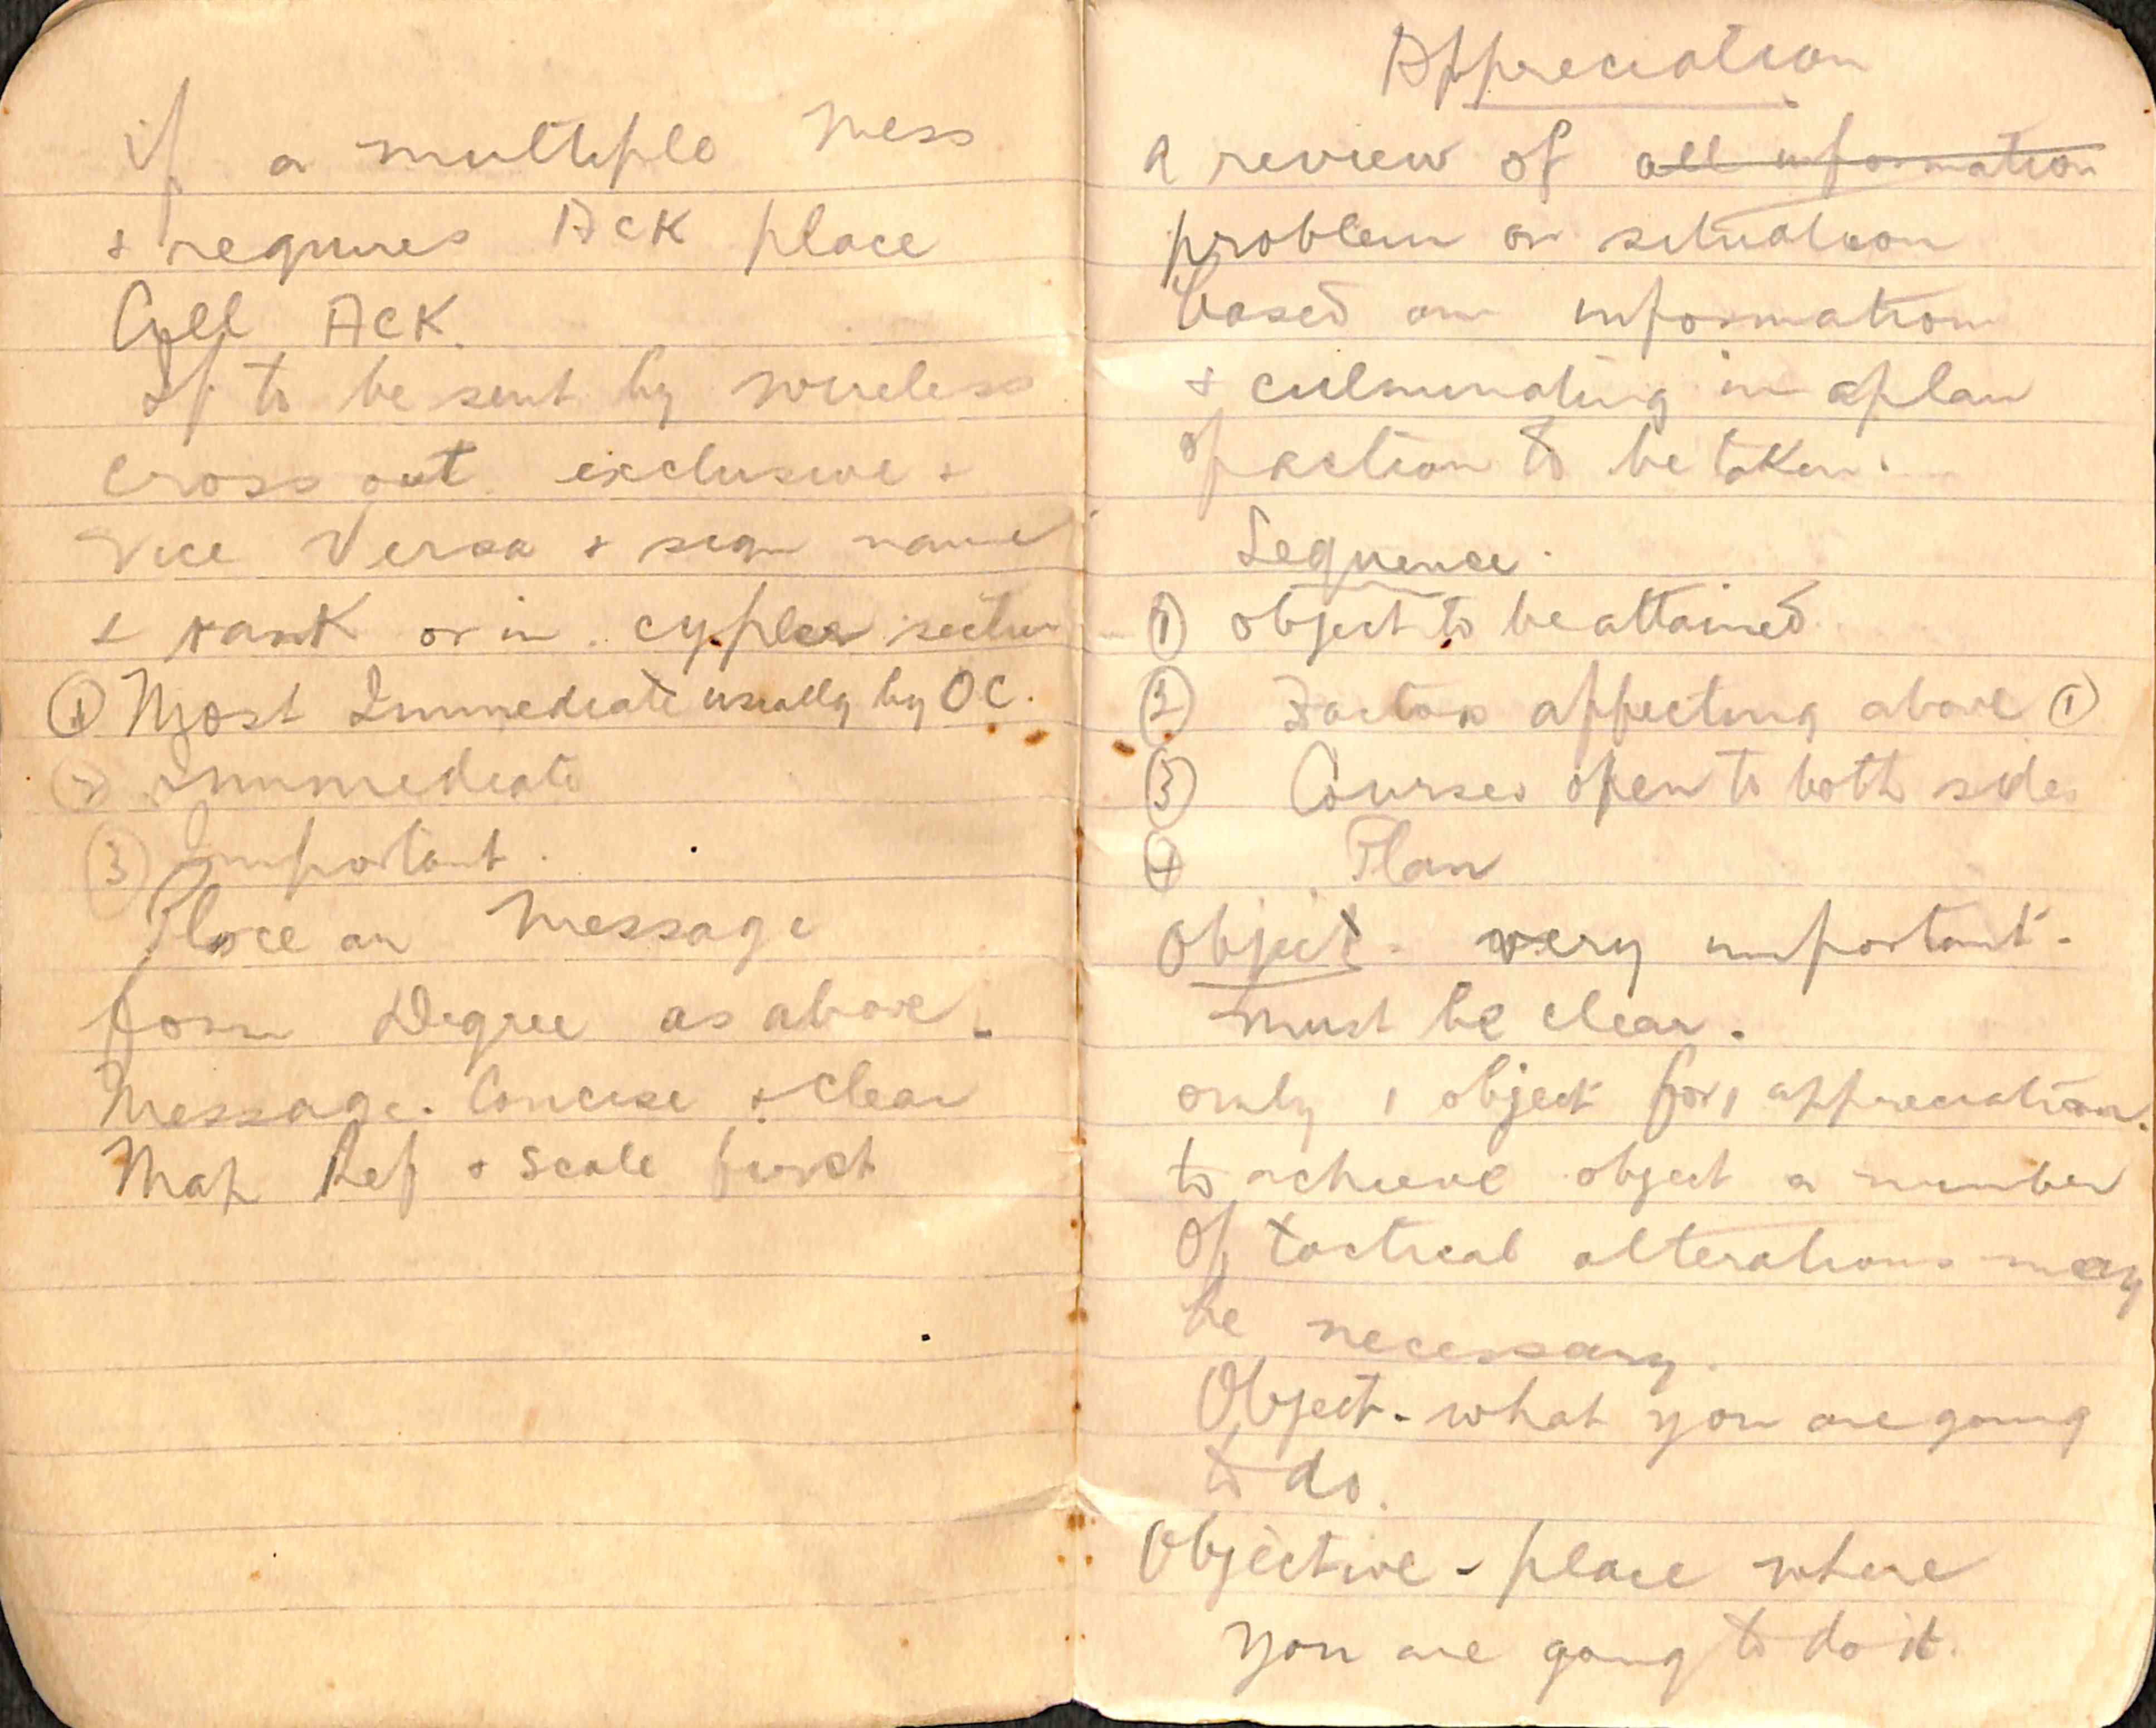 if a multiple mess
+ requires ACK place
Call ACK.
If to be sent by wireless
cross out exclusive +
Vice Versa + sign name
+ rank or in cypher section
① Most Immediate usually by OC.
② Immediate
③ Important.
Place on Message
form Degree as above.
Message. Concise + Clear
Map Ref + Scale first
Appreciation
A review of all information
problem or situation
based on information
+ culminating in a plan
of action to be taken.
Sequence.
① object to be attained
② Factors affecting above ①
③ Courses open to both sides
④ Plan
Object - very important -
must be clear.
only 1 object for 1 appreciation.
to achieve object a number
of tactical alterations may
be necessary.
Object - what you are going
to do.
Objective - place where
you are going to do it.